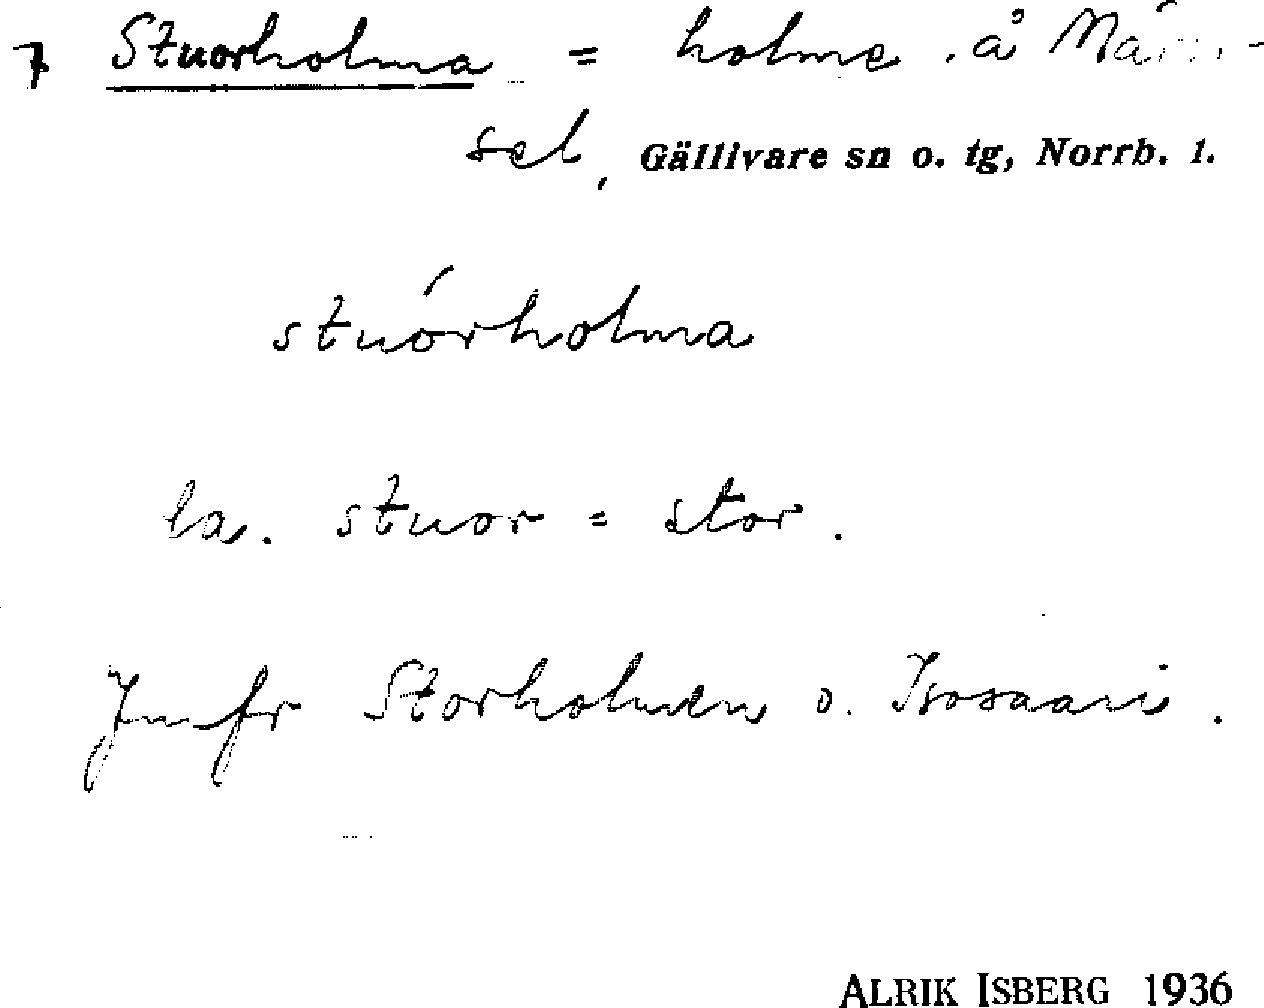 Stuorholma = holme å
sel, Gällivare sn o. tg, Norrb. l.
stuórholma
la. stuor = stor.
Jmfr Storholmen o. Isosaari.
ALRIK ISBERG 1936